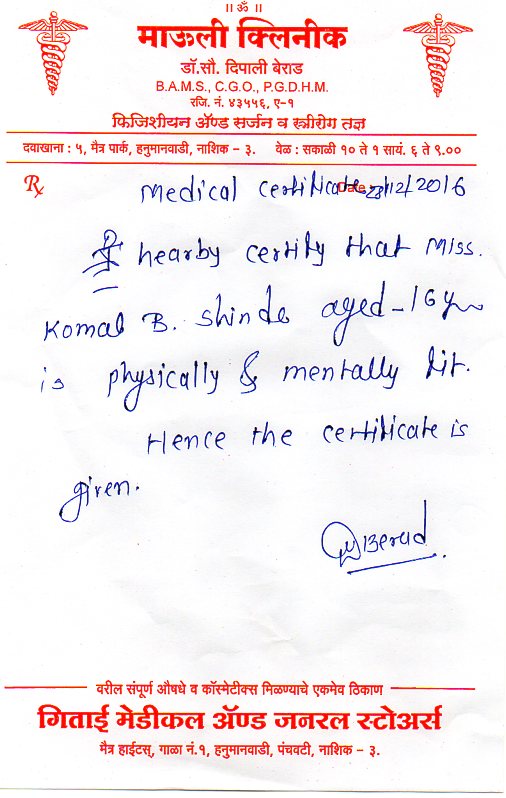 ॥ ॐ ॥
माऊली क्लिनीक
डॉ.सौ. दिपाली बेराड
B.A.M.S., C.G.O., P.G.D.H.M.
रजि. नं. ४३५५६, ए-१
फिजिशीयन ॲण्ड सर्जन व स्त्रीरोग तज्ञ
दवाखाना : ५, मैत्र पार्क, हनुमानवाडी, नाशिक - ३. वेळ : सकाळी १० ते १ सायं. ६ ते ९.००
℞ Medical certificate Date 12/2016
I hearby certify that Miss.
Komal B. Shinde aged - 16 yrs
is physically & mentally fit.
Hence the certificate is
given.
Berad
वरील संपूर्ण औषधे व कॉस्मेटीक्स मिळण्याचे एकमेव ठिकाण
गिताई मेडीकल ॲण्ड जनरल स्टोअर्स
मैत्र हाईटस्, गाळा नं.१, हनुमानवाडी, पंचवटी, नाशिक - ३.